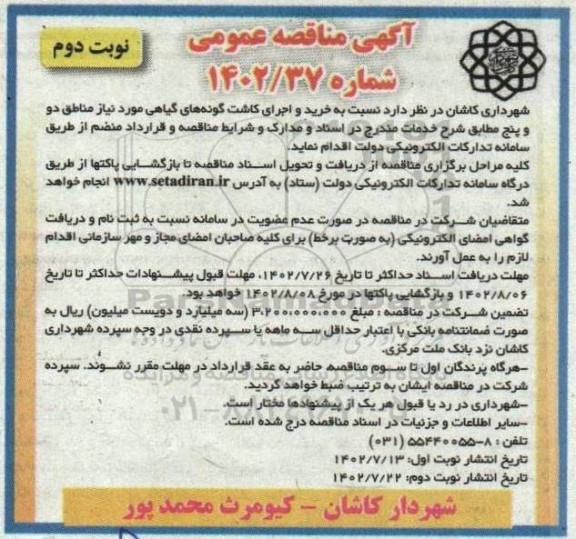 آگهی مناقصه عمومی
شماره ۱۴۰۲/۳۷
نوبت دوم
شهرداری کاشان در نظر دارد نسبت به خرید و اجرای کاشت گونه‌های گیاهی مورد نیاز مناطق دو
و پنج مطابق شرح خدمات مندرج در اسناد و مدارک و شرایط مناقصه و قرارداد منضم از طریق
سامانه تدارکات الکترونیکی دولت اقدام نماید.
کلیه مراحل برگزاری مناقصه از دریافت و تحویل اسناد مناقصه تا بازگشایی پاکتها از طریق
درگاه سامانه تدارکات الکترونیکی دولت (ستاد) به آدرس www.setadiran.ir انجام خواهد
شد.
متقاضیان شرکت در مناقصه در صورت عدم عضویت در سامانه نسبت به ثبت نام و دریافت
گواهی امضای الکترونیکی (به صورت برخط) برای کلیه صاحبان امضای مجاز و مهر سازمانی اقدام
لازم را به عمل آورند.
مهلت دریافت اسناد حداکثر تا تاریخ ۱۴۰۲/۷/۲۶، مهلت قبول پیشنهادات حداکثر تا تاریخ
۱۴۰۲/۸/۰۶ و بازگشایی پاکتها در مورخ ۱۴۰۲/۸/۰۸ خواهد بود.
تضمین شرکت در مناقصه : مبلغ ۳،۲۰۰،۰۰۰،۰۰۰ (سه میلیارد و دویست میلیون) ریال به
صورت ضمانتنامه بانکی با اعتبار حداقل سه ماهه یا سپرده نقدی در وجه سپرده شهرداری
کاشان نزد بانک ملت مرکزی.
-هرگاه برندگان اول تا سوم مناقصه حاضر به عقد قرارداد در مهلت مقرر نشوند. سپرده
شرکت در مناقصه ایشان به ترتیب ضبط خواهد گردید.
-شهرداری در رد یا قبول هر یک از پیشنهادها مختار است.
-سایر اطلاعات و جزئیات در اسناد مناقصه درج شده است.
تلفن : ۸-۵۵۴۴۰۰۵۵ (۰۳۱)
تاریخ انتشار نوبت اول: ۱۴۰۲/۷/۱۳
تاریخ انتشار نوبت دوم: ۱۴۰۲/۷/۲۲
شهردار کاشان – کیومرث محمد پور